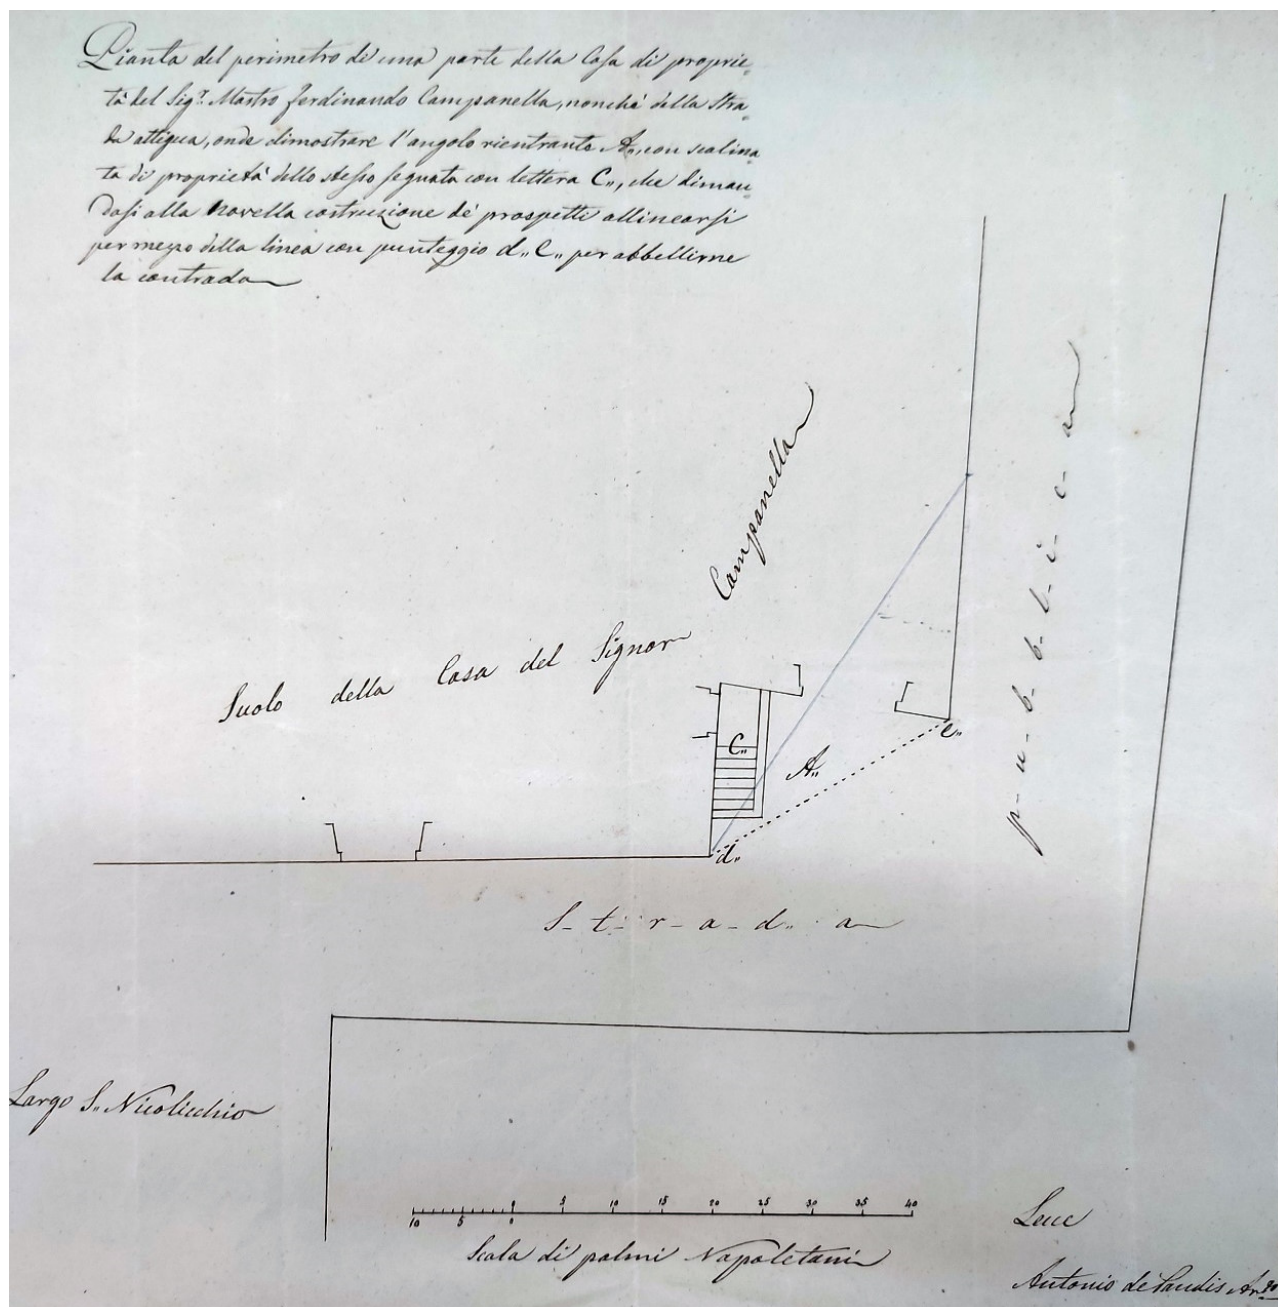 Pianta del perimetro di una parte della Casa di proprie„
tà del Sig.r Mastro Ferdinando Campanella, nonchè della Stra„
da attigua, onde dimostrare l'angolo rientrante A„, con scalina„
ta di proprietà dello stesso segnata con lettera C„, che diman„
dasi alla novella costruzione de' prospetti allinearsi
per mezzo della linea con punteggio d„ C„ per abbellirne
la contrada
Campanella
Suolo della Casa del Signor
p-u-b-b-l-i-c-a
C„
A„
e„
d„
S-t-r-a-d-a
Largo S„ Nicolicchio
0 5 10 15 20 25 30 35 40
10 5 0
Scala di palmi Napoletani
Lecce
Antonio de